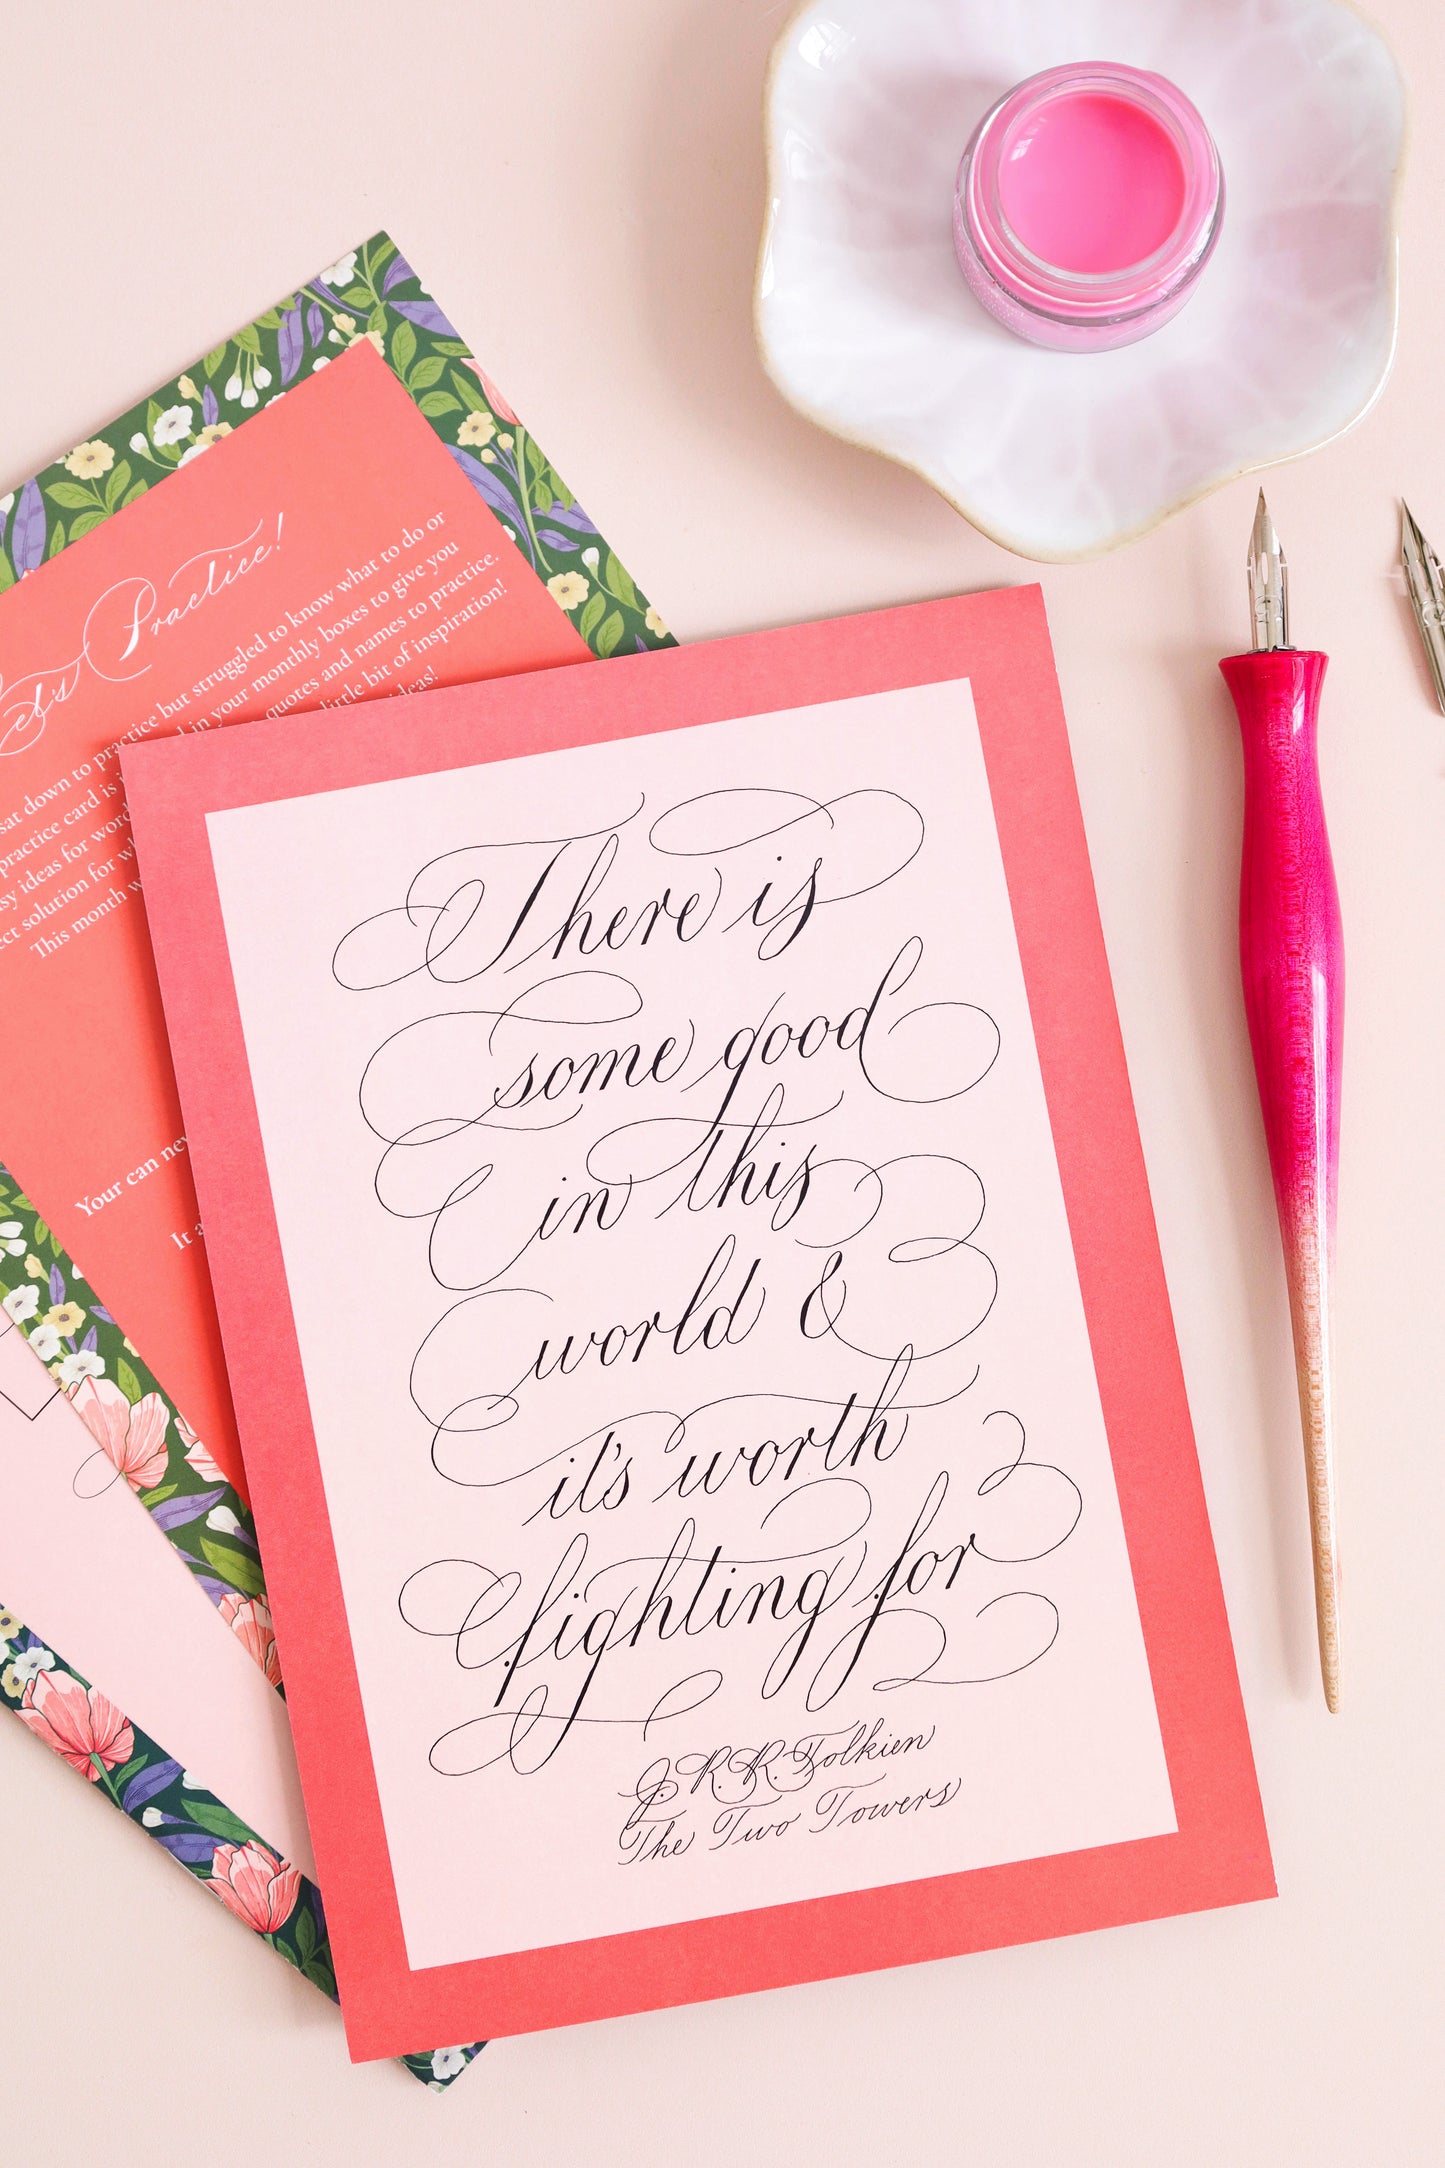 Let's Practice!
sat down to practice but struggled to know what to do or
practice card is in your monthly boxes to give you
ideas for words quotes and names to practice.
solution for little bit of inspiration!
This month ideas!
Your can
It
There is
some good
in this
world &
it's worth
fighting for
J.R.R. Tolkien
The Two Towers